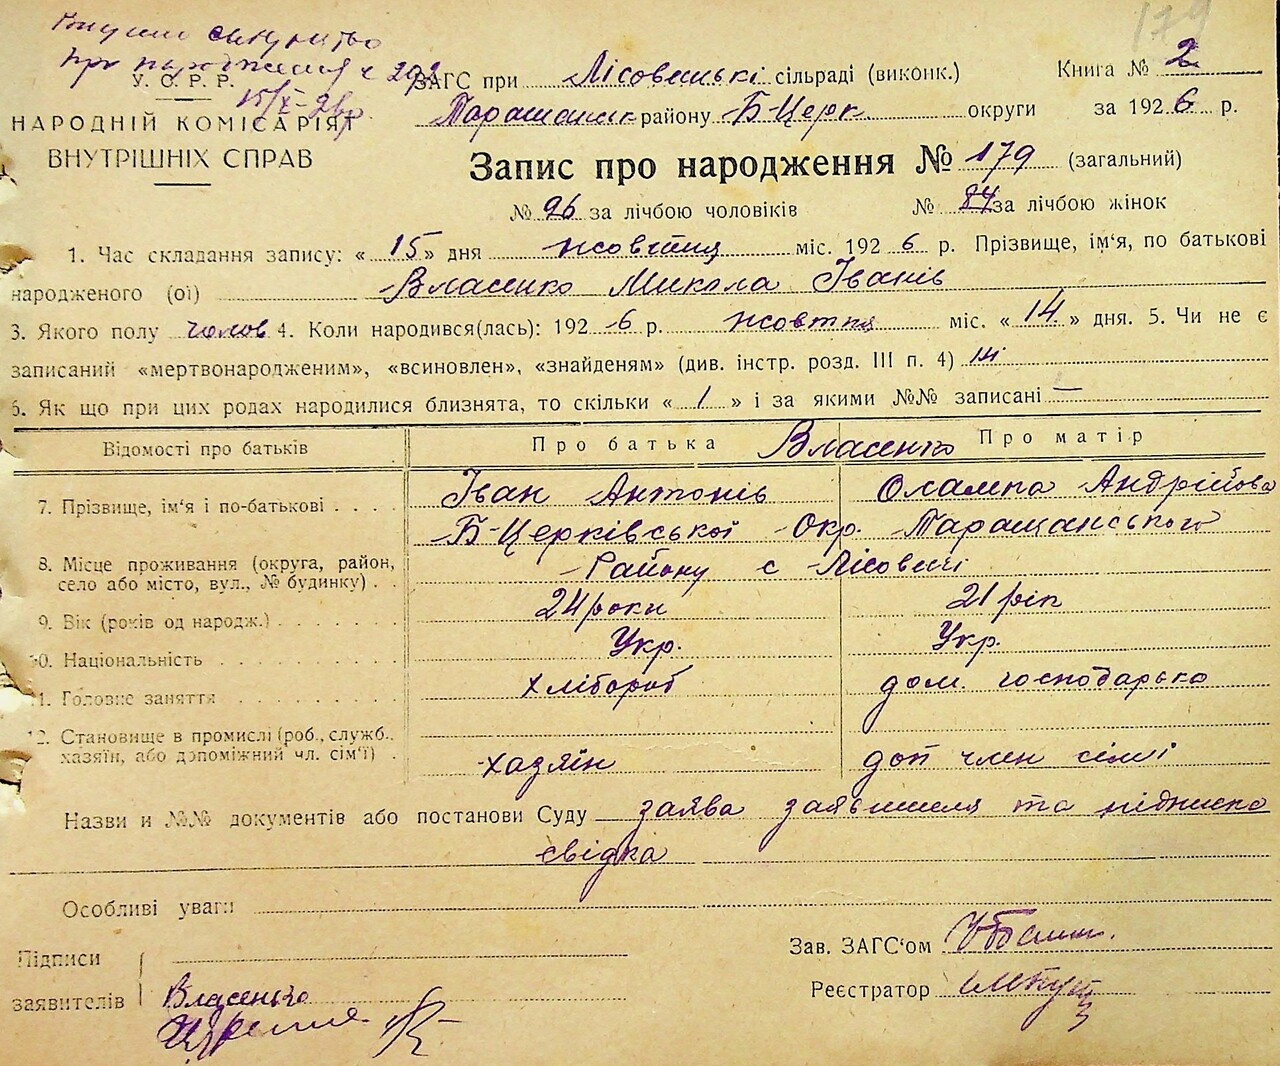 179
про народження
У. С. Р. Р.
15/X-26р
НАРОДНІЙ КОМІСАРІЯТ
ВНУТРІШНІХ СПРАВ
ЗАГС при Лісовецькі сільраді (виконк.) Книга № 2
Таращанск району Б-Церк округи за 1926 р.
Запис про народження № 179 (загальний)
№ 96 за лічбою чоловіків № 84 за лічбою жінок
1. Час складання запису: « 15 » дня жовтня міс. 1926 р. Прізвище, ім‘я, по батькові
народженого (ої) Власенко Микола Іванів
3. Якого полу чолов 4. Коли народився(лась): 1926 р. жовтня міс. « 14 » дня. 5. Чи не є
записаний «мертвонародженим», «всиновлен», «знайденям» (див. інстр. розд. III п. 4) ні
6. Як що при цих родах народилися близнята, то скільки « 1 » і за якими №№ записані —
Відомості про батьків Про батька Власенко Про матір
7. Прізвище, ім‘я і по-батькові Іван Антонів Олампа Андрійова
8. Місце проживання (округа, район, село або місто, вул., № будинку) Б-Церківської Окр. Таращанського
Району с Лісовеці
9. Вік (років од народж.) 24 роки 21 рік
10. Національність Укр. Укр.
11. Головне заняття хлібороб дом. господарько
12. Становище в промислі (роб., служб.,
хазяїн, або допоміжний чл. сім‘ї) хазяїн доп член сімі
Назви и №№ документів або постанови Суду заява заявителя та підписка
свідка
Особливі уваги
Підписи
заявителів Власенко
Зав. ЗАГС‘ом
Реєстратор